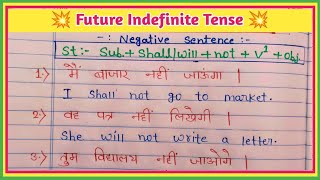 💥 Future Indefinite Tense 💥
-: Negative Sentence :-
St:- Sub.+ Shall/will + not + V¹ + Obj.
1:) मैं बाजार नहीं जाऊंगा ।
I Shall not go to market.
2:) वह पत्र नहीं लिखेगी ।
She will not write a letter.
3:) तुम विद्यालय नहीं जाओगे ।